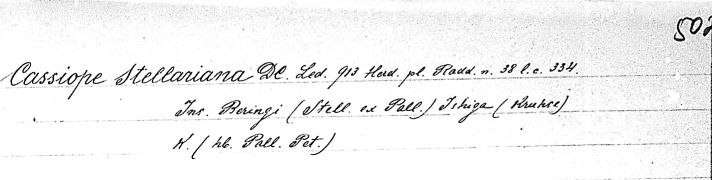 502
Cassiope Stellariana DC. Led. 913 Herd. pl. Radd. n. 38 l.c. 334.
Ins. Beringi (Stell. ex Pall.) Ishiga (Kruhse)
K. (hb. Pall. Pet.)